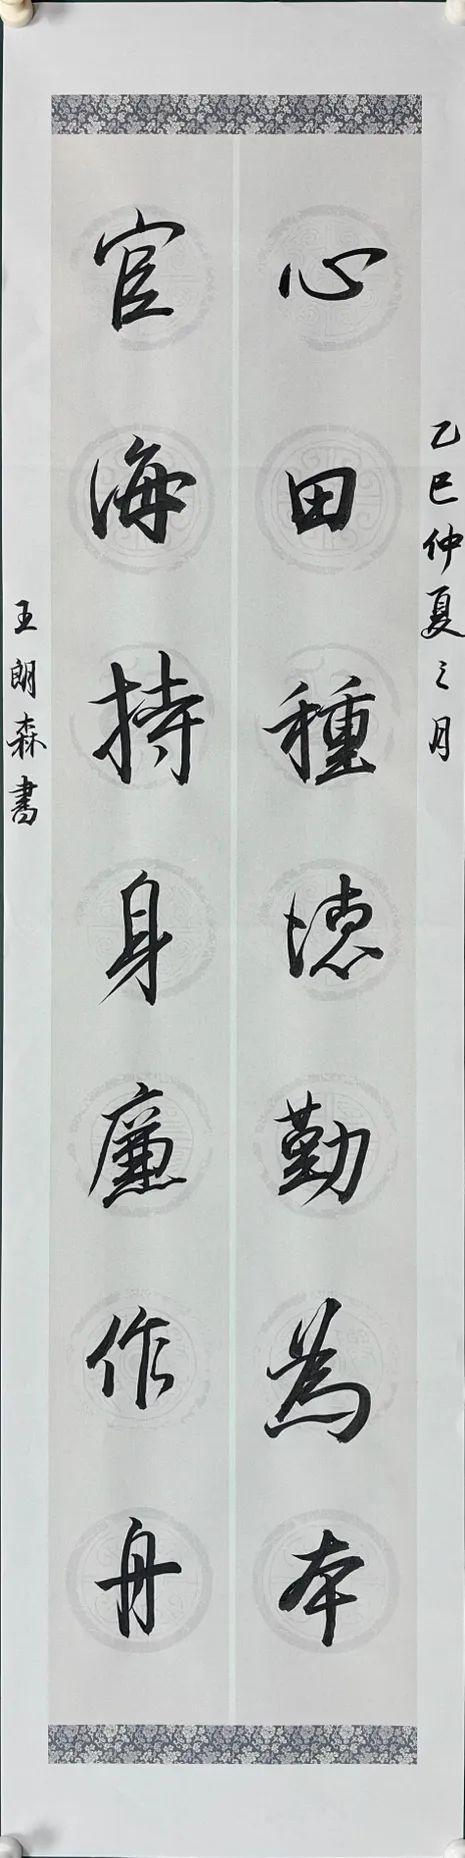 乙巳仲夏之月
心田種德勤為本
官海持身廉作舟
王朗森書